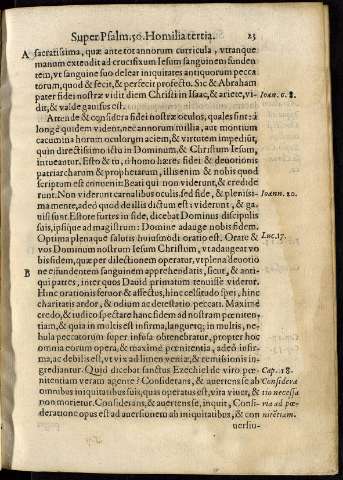 Super Psalm. 50. Homilia tertia. 23
A sacratissima, quæ ante tot annorum curricula, vtranque
manum extendit ad crucifixum Iesum sanguinem funden
tem, vt sanguine suo deleat iniquitates antiquorum pecca
torum, quod & fecit, & perfecit profecto. Sic & Abraham
pater fidei nostræ vidit diem Christi in Isaac, & ariete, vi- Ioann. 8.
dit, & valde gauisus est.
Attende & considera fidei nostræ oculos, quales sunt: à
longè quidem vident, nec annorum millia, aut montium
cacumina horum oculorum aciem, & virtutem impediũt,
quin directissimo ictu in Dominum, & Christum Iesum,
intueantur. Esto & tu, ô homo hæres fidei & deuotionis
patriarcharum & prophetarum, illis enim & nobis quod
scriptum est conuenit: Beati qui non viderunt, & credide
runt. Non viderunt carnalibus oculis, sed fide, & plenissi- Ioann. 20.
ma mente, adeò quod de illis dictum est: viderunt, & ga-
uisi sunt. Estote fortes in fide, dicebat Dominus discipulis
suis, ipsique ad magistrum: Domine adauge nobis fidem.
Optima plenaque salutis huiusmodi oratio est. Orate & Luc. 17.
vos Dominum nostrum Iesum Christum, vt adaugeat vo
bis fidem, quæ per dilectionem operatur, vt plena deuotio
B ne eiusdem tem sanguinem apprehendatis, sicut, & anti-
qui patres, inter quos Dauid primatum tenuisse videtur.
Hinc orationis feruor & affectus, hinc celsitudo spei, hinc
charitatis ardor, & odium ac detestatio peccati. Maximè
credo, & iudico spectare hanc fidem ad nostram pœniten-
tiam, & quia in multis est infirma, languetq; in multis, ne-
bula peccatorum super infusa obtenebratur, propter hoc
omnia eorum opera, & maximè pœnitentia, adeò infir-
ma, ac debilis est, vt vix ad limen veniæ, & remissionis in-
grediantur. Quid dicebat sanctus Ezechiel de viro pœ- Cap. 18.
nitentiam veram agente? Considerans, & auertens se ab Considera
omnibus iniquitatibus suis, quas operatus est, vita viuet, & tio necessa
non morietur. Considerans, & auertens se, inquit, Consi- ria ad pœ
deratione opus est ad auersionem ab iniquitatibus, & con nitẽtiam.
uersiu-